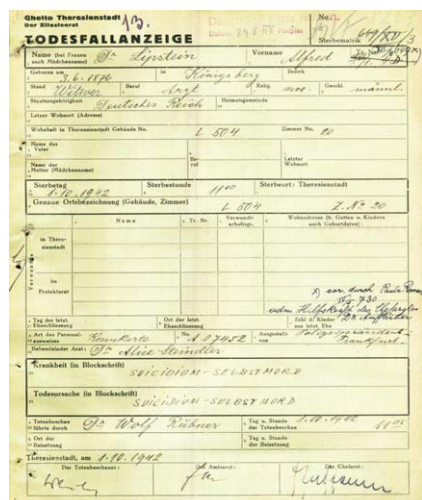 Ghetto Theresienstadt
Der Ältestenrat
13.
No.
TODESFALLANZEIGE
Sterbematrik
Name (bei Frauen auch Mädchenname) Dr Lipstein Vorname Alfred Tr. Nr.
Geboren am 8.6.1876 in Königsberg Bezirk
Stand Witwer Beruf Arzt Relig. mos. Geschl. männl.
Staatszugehörigkeit Deutsches Reich Heimatsgemeinde
Letzer Wohnort (Adresse)
Wohnhaft in Theresienstadt Gebäude No. L 504 Zimmer No. 20
Name des Vater Beruf Letzter Wohnort
Name der Mutter (Mädchenname)
Sterbetag 1.10.1942 Sterbestunde 11 00 Sterbeort: Theresienstadt
Genaue Ortsbezeichnung (Gebäude, Zimmer) L 504 Z. No 20
Name Tr. Nr. Verwandtschaftsgr. Wohnadresse (b. Gatten u. Kindern auch Geburtsdaten)
Verwandte
in Theresienstadt
im Protektorat
x) durch Paula
730
Hilfskraft des
Tag der letzt. Eheschliessung Ort der letzt. Eheschliessung Zahl d. Kinder aus letzt. Ehe
Art des Personalausweises Kennkarte No. A 07452 Ausgestellt von Frankfurt
Behandelnder Arzt: Dr Alice Steindler
Krankheit (in Blockschrift)
SUICIDIUM - SELBSTMORD
Todesursache (in Blockschrift)
SUICIDIUM - SELBSTMORD
Totenbeschau führte durch Dr Wolf Rübner Tag u. Stunde der Totenbeschau 1.10.1942
Ort der Beisetzung Tag u. Stunde der Beisetzung
Theresienstadt, am 1.10.1942
Der Totenbeschauer: Der Amtsarzt: Der Chefarzt: